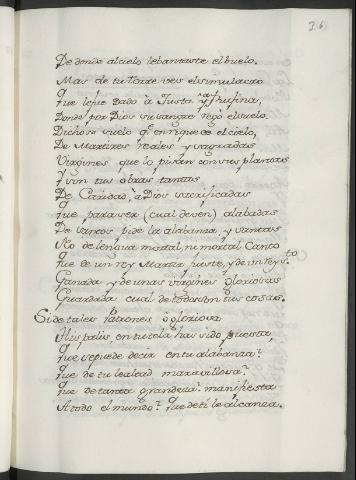 36
De donde al cielo lebantaste el buelo.
Mas de tu torre ves el simulacro
que le fue dado à Justa y à Rufina,
Donde por Dios su sangre regò el suelo.
Dichoso suelo qe enriquece el cielo,
De Martires reales y sagradas
Virgines que lo pisan con sus plantas
y son tus obras tantas
De Caridad, à Dios sacrificadas
que para ser (cual deven) alabadas
De sanctos pide la alabanza, y santas
No de lengua mortal, ni mortal Canto
que de un rey Martir fuiste, y de un rey sto
Ganada y de unas virgines gloriosas
Guardada cual de todas son tus cosas.
Si de tales Patrones ò gloriosa
Hispalis, en tutela has sido puesta,
que se puede decir en tu alabanza?
que de tu lealtad maravillosa?
que de tanta grandeza? manifiesta
A todo el mundo? que de ti le alcanza.